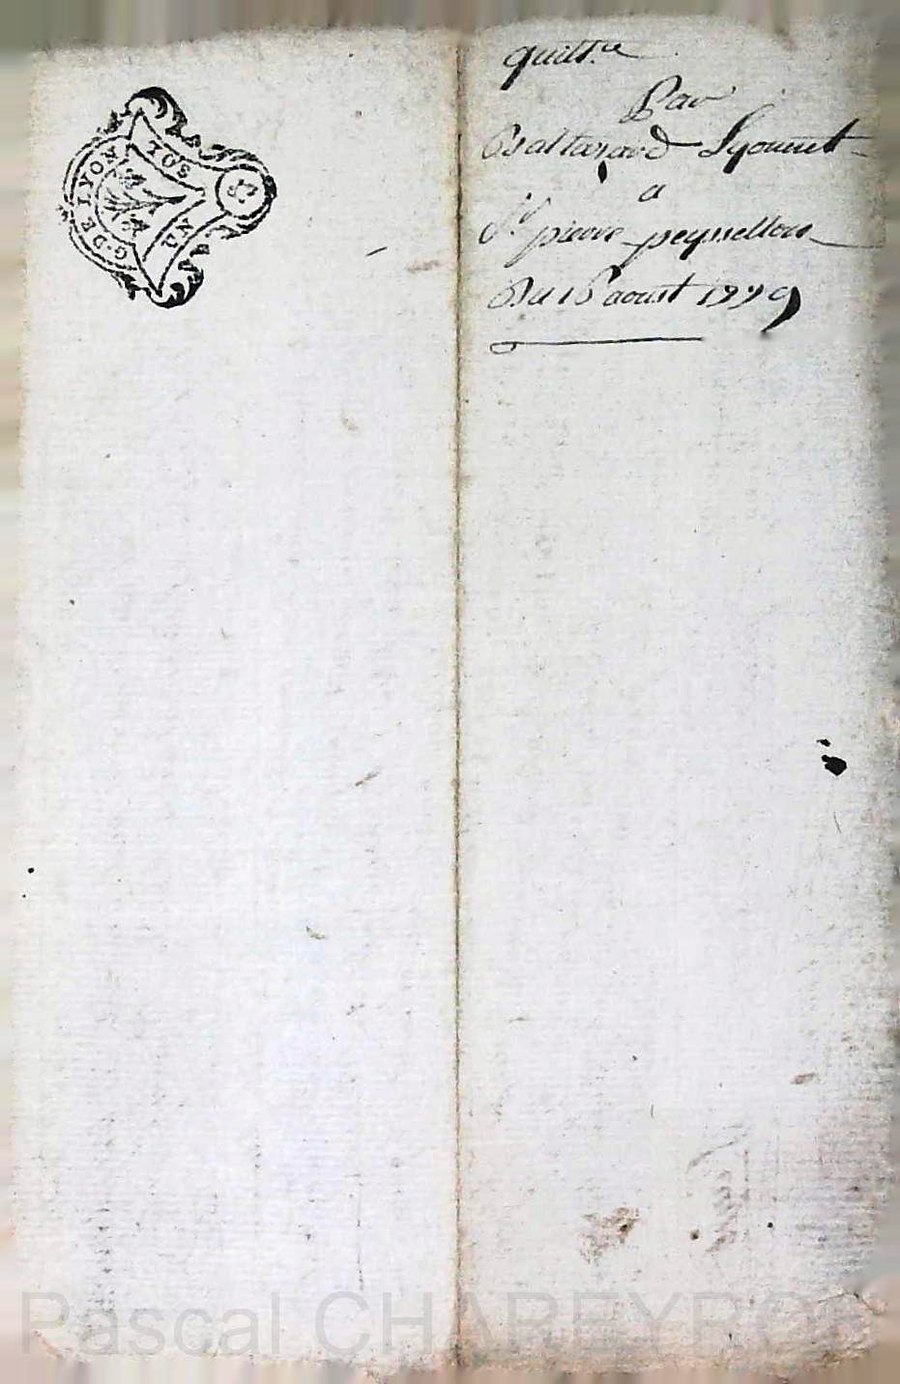 G DE LYON
UN SUI
quitt.ce
Par
Baltazard Lyonnet
a
Sr pierre peyssellon
Du 16 aoust 1779
Pascal CHAREYRON